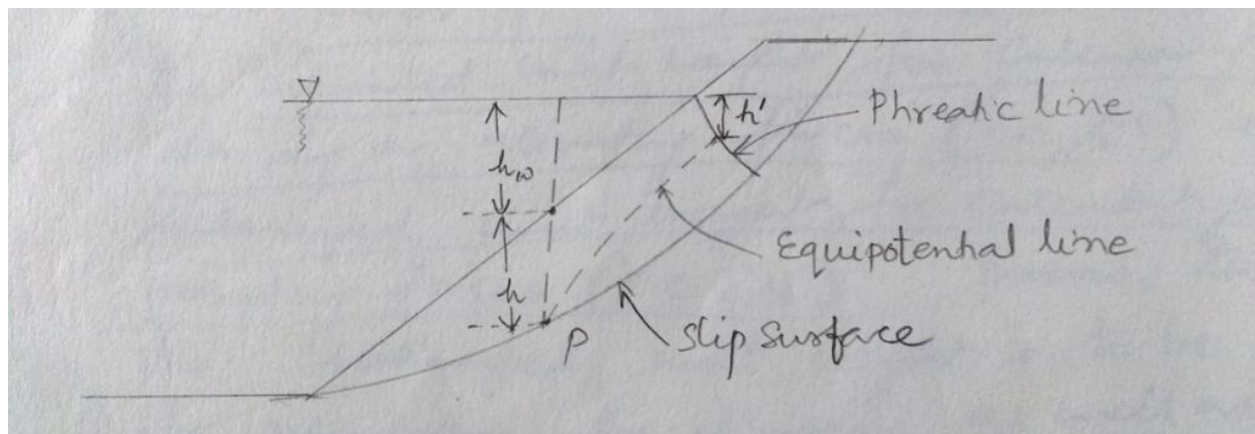 h'
Phreatic line
hw
Equipotential line
h
P
slip surface